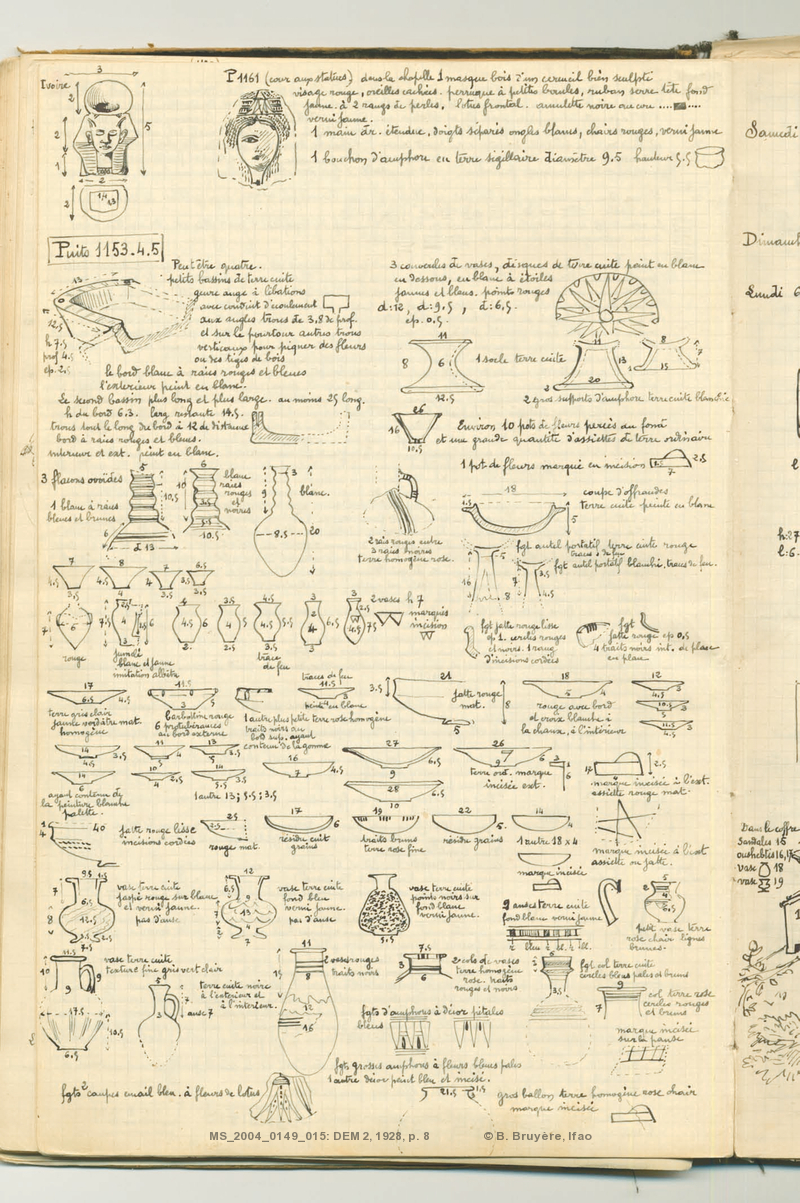 Ivoire
3
2
5
2
1
2
2
P1161 (cour aux statues) dans la chapelle 1 masque bois d'un cercueil bien sculpté
visage rouge, oreilles cachées. perruque à petites boucles, ruban serre tête fond
jaune. à 2 rangs de perles, lotus frontal. amulette noire au cou
verni jaune.
1 main dr. étendue, doigts séparés ongles blancs, chairs rouges, verni jaune
1 bouchon d'amphore en terre sigillaire diamètre 9.5 hauteur 5.5
Puits 1153.4.5
Peut être quatre.
petits bassins de terre cuite
genre auge à libations
avec conduit d'écoulement
aux angles trous de 3,8 de prof.
et sur le pourtour autres trous
verticaux pour piquer des fleurs
ou des tiges de bois
13
12.5
h 7.5
prof 4.5
ep. 2.5
le bord blanc à raies rouges et bleues
l'extérieur peint en blanc.
Le second bassin plus long et plus large. au moins 25 long.
h du bord 6.3. larg restante 14.5.
trous tout le long du bord à 12 de distance
bord à raies rouges et bleues.
intérieur et ext. peint en blanc.
3 couvercles de vases, disques de terre cuite peint en blanc
en dessous, en blanc à étoiles
jaunes et bleus. points rouges
d:12, d:9.5, d:6.5.
ep. 0.5.
11
8
6
12.5
1 socle terre cuite
11
13
20
2
8
15
7
2 gros supports d'amphore terre cuite blanchie
26
16
10.5
Environ 10 pots de fleurs percés au fond
et une grande quantité d'assiettes de terre ordinaire
1 pot de fleurs marqué en incision
7
2.8
3 flacons ovoïdes
1 blanc à raies
bleues et brunes
5
10.5
6
d 13
6
10
10.5
blanc
raies
rouges
et
noires
3
9
8.5
20
blanc.
2 raies rouges entre
3 raies noires
terre homogène rose.
18
5
coupe d'offrandes
terre cuite peinte en blanc
fgt autel portatif terre cuite rouge
traces de feu
fgt autel portatif blanchi, traces de feu.
16
8
7
3.5
7
4.5
3.5
8
4
4
7
3.5
6.5
3.5
rouge
jumelé
blanc et jaune
imitation albâtre
trace
de feu
2 vases h 7
marqués
incision
fgt jatte rouge lisse
ep 1. cercles rouges
et noirs. 1 rang
d'incisions cordées
fgt
jatte rouge ep 0,5
4 traits noirs int. de place
en place
17
6.5
4.5
terre gris clair
jaunie verdâtre mat.
homogène
11.5
3
5
barbotine rouge
6 protubérances
au bord externe
1 autre plus petite terre rose homogène
traits noirs au
bord sup. ayant
contenu de la gomme
traces de feu
11.5
3
peint en blanc
21
3.5
8
5
jatte rouge
mat.
18
5
4
rouge avec bord
et croix blanche à
la chaux, à l'intérieur
12
3
10.5
5
11.5
4.5
3
14
4.5
3.5
11
5
4
13
5
3.5
14
6
10
4
2.5
14
5.5
3.5
ayant contenu de
la peinture blanche
palette.
1 autre 13; 5.5; 3.5
16
7
4.5
27
9
6.5
28
10
6.5
26
9
7
terre ord. marque
incisée ext.
2.5
marque incisée à l'ext.
assiette rouge mat.
marque incisée à l'ext
assiette ou jatte.
40
4
2
jatte rouge lisse
incisions cordées
25
2.5
rouge mat.
17
6
résidu cuit
grains
19
traits bruns
terre rose fine
22
5
résidu grains
14
4
1 autre 18 x 4
marque incisée
9.5
7
8
12.5
7.5
vase terre cuite
jaspé rouge sur blanc
et verni jaune.
pas d'anse
12
6.5
9
13
7
4
7
vase terre cuite
fond bleu
verni jaune.
pas d'anse
5.5
vase terre cuite
points noirs sur
fond blanc
verni jaune.
9 anses terre cuite
fond blanc verni jaune
bleu
petit vase terre
rose chair lignes
brunes.
11.5
10
9
9
vase terre cuite
texture fine gris vert clair
17.5
10.5
6.5
5
7
anse 7
terre cuite noire
à l'extérieur et
à l'intérieur.
11
8
15
12
16
2 vases rouges
traits noirs
7.5
3
6
2 cols de vases
terre homogène
rose. traits
rouges et noirs
6
3.5
fgt. col terre cuite
cercles bleus pales et bruns
9
7
col terre rose
cercles rouges
et bruns
fgts d'amphores à décor pétales
bleues
marque incisée
sur la panse
fgts grosses amphores à fleurs bleues pales
1 autre décor peint bleu et incisé.
fgts 2 coupes émail bleu. à fleurs de lotus
21.5
1.5
gros ballon terre homogène rose chair
marque incisée
Samedi
Dimanch
Lundi 6
l
h:27
l:6.
Dans le coffre
Sandales 15
oushebtis 16,
vase 18
vase 19
MS_2004_0149_015: DEM 2, 1928, p. 8 © B. Bruyère, Ifao